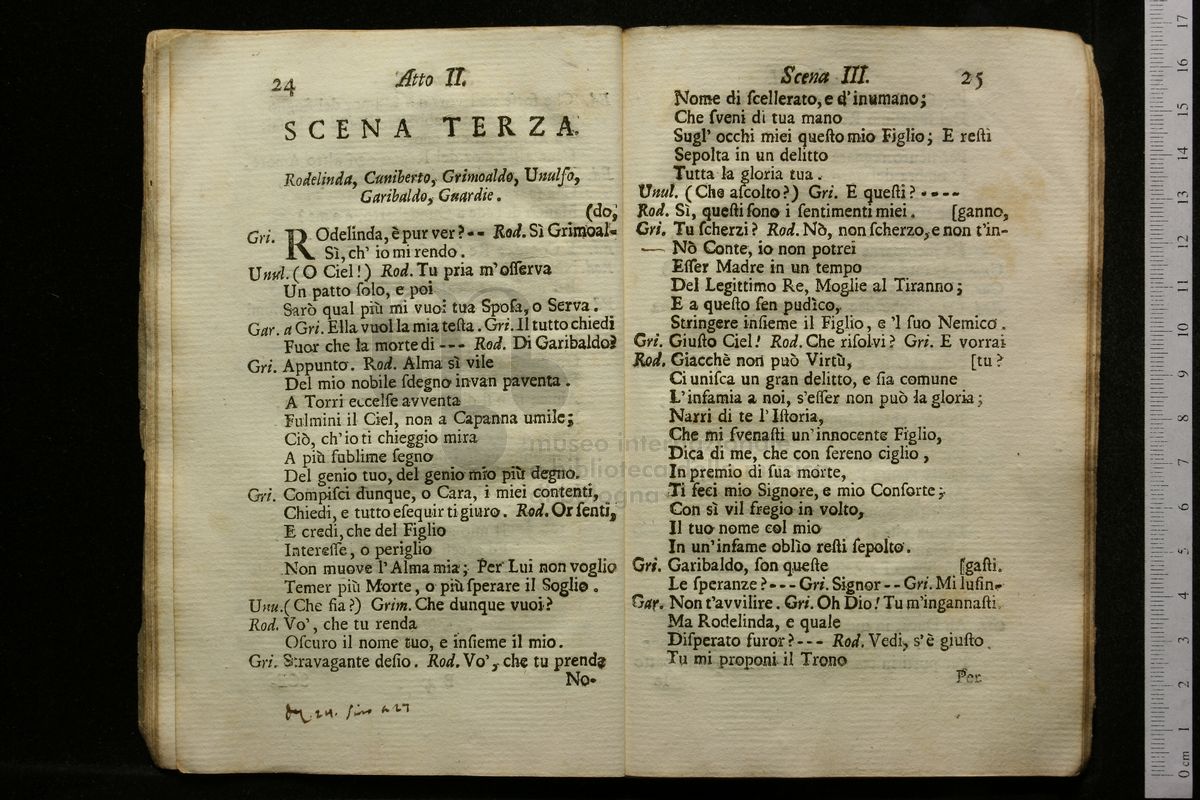 24 Atto II.
SCENA TERZA.
Rodelinda, Cuniberto, Grimoaldo, Unulfo,
Garibaldo, Guardie.
(do,
Gri. ROdelinda, è pur ver?-- Rod. Sì Grimoal-
Sì, ch' io mi rendo.
Unul. (O Ciel!) Rod. Tu pria m'osserva
Un patto solo, e poi
Sarò qual più mi vuoi tua Sposa, o Serva.
Gar. a Gri. Ella vuol la mia testa. Gri. Il tutto chiedi
Fuor che la morte di --- Rod. Di Garibaldo?
Gri. Appunto. Rod. Alma sì vile
Del mio nobile sdegno invan paventa.
A Torri eccelse avventa
Fulmini il Ciel, non a Capanna umile;
Ciò, ch'io ti chieggio mira
A più sublime segno
Del genio tuo, del genio mio più degno.
Gri. Compisci dunque, o Cara, i miei contenti,
Chiedi, e tutto esequir ti giuro. Rod. Or senti,
E credi, che del Figlio
Interesse, o periglio
Non muove l'Alma mia; Per Lui non voglio
Temer più Morte, o più sperare il Soglio.
Unu. (Che sia?) Grim. Che dunque vuoi?
Rod. Vo', che tu renda
Oscuro il nome tuo, e insieme il mio.
Gri. Stravagante desio. Rod. Vo', che tu prenda
No-
24. sino a 27
Scena III. 25
Nome di scellerato, e d'inumano;
Che sveni di tua mano
Sugl' occhi miei questo mio Figlio; E resti
Sepolta in un delitto
Tutta la gloria tua.
Unul. (Che ascolto?) Gri. E questi?----
Rod. Sì, questi sono i sentimenti miei. [ganno,
Gri. Tu scherzi? Rod. Nò, non scherzo, e non t'in-
— Nò Conte, io non potrei
Esser Madre in un tempo
Del Legittimo Re, Moglie al Tiranno;
E a questo sen pudìco,
Stringere insieme il Figlio, e 'l suo Nemico.
Gri. Giusto Ciel! Rod. Che risolvi? Gri. E vorrai
Rod. Giacchè non può Virtù, [tu?
Ci unisca un gran delitto, e sia comune
L'infamia a noi, s'esser non può la gloria;
Narri di te l'Istoria,
Che mi svenasti un'innocente Figlio,
Dica di me, che con sereno ciglio,
In premio di sua morte,
Ti feci mio Signore, e mio Consorte;
Con sì vil fregio in volto,
Il tuo nome col mio
In un'infame oblìo resti sepolto.
Gri. Garibaldo, son queste [gasti.
Le speranze?--- Gri. Signor -- Gri. Mi lusin-
Gar. Non t'avvilire. Gri. Oh Dio! Tu m'ingannasti.
Ma Rodelinda, e quale
Disperato furor?--- Rod. Vedi, s'è giusto.
Tu mi proponi il Trono
Per